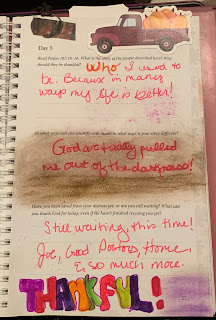 Day 5
Read Psalm 107:10-16. What is the story of the people described here? Why
should they be thankful?
Who I used to
be. Because in many
ways my life is better!
In what ways can you identify with them? In what ways is your story different?
God actually pulled
me out of the darkness!
Have you been saved from your distress yet, or are you still waiting? What can
you thank God for today, even if He hasn't finished rescuing you yet?
Still waiting, this time!
Joe, Good Doctors, Home,
& so much more.
THANKFUL!